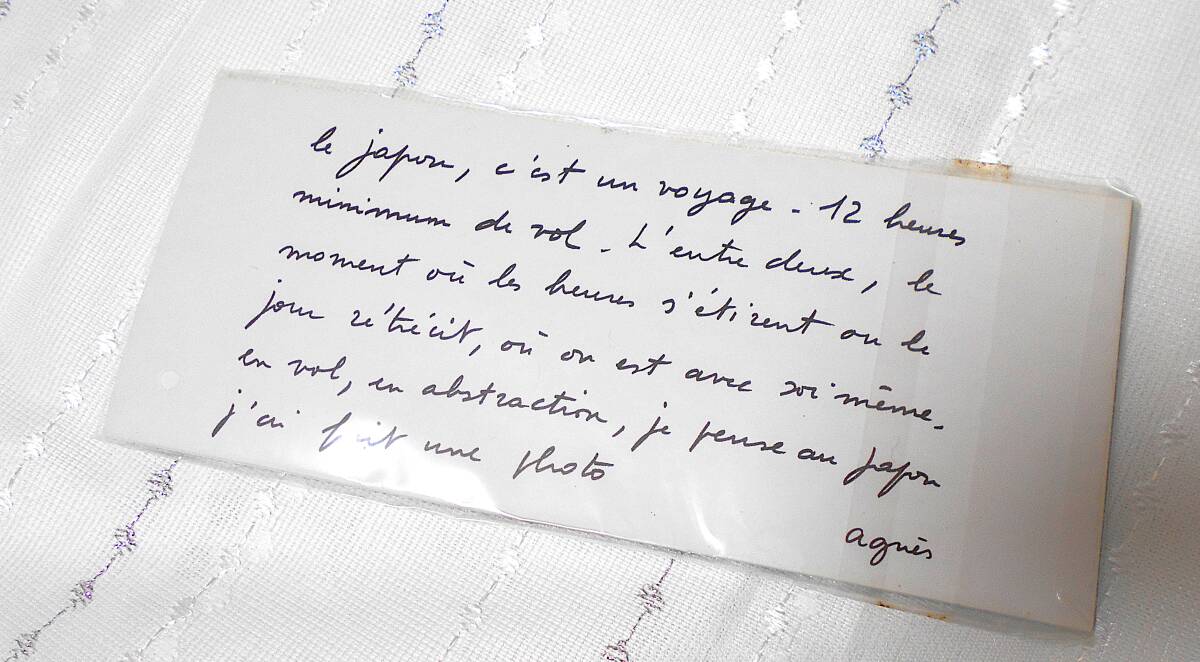 le japon, c'est un voyage - 12 heures
minimum de vol. L'entre deux, le
moment où les heures s'étirent ou le
jour rétrécit, où on est avec soi même.
en vol, en abstraction, je pense au japon
j'ai fait une photo
agnès